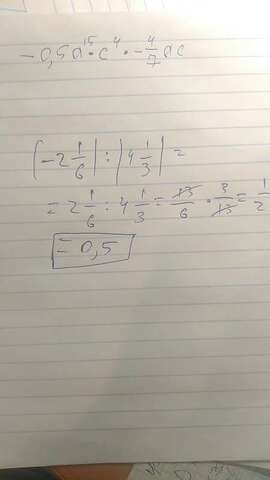 -0,5a¹⁵·c⁴·-4/7ac
|-2 1/6| : |4 1/3| =
= 2 1/6 : 4 1/3 = 13/6 · 3/13 = 1/2
= 0,5